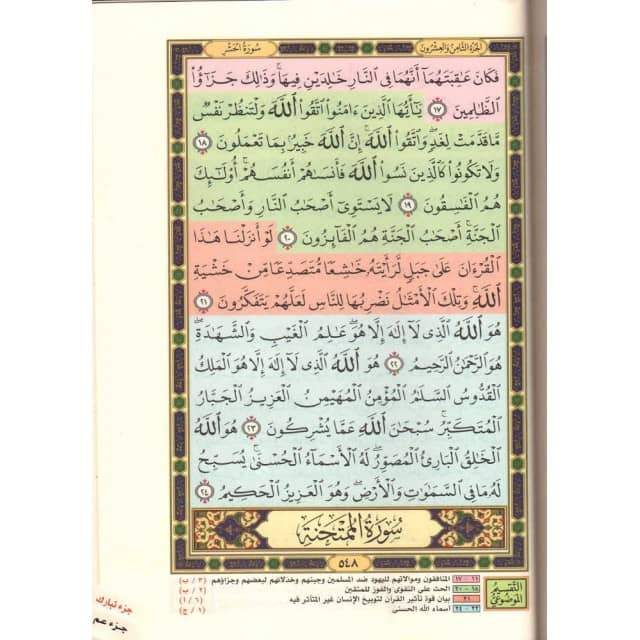 الجزء الثامن والعشرون
سورة الحشر
فَكَانَ عَٰقِبَتَهُمَآ أَنَّهُمَا فِى ٱلنَّارِ خَٰلِدَيْنِ فِيهَا ۚ وَذَٰلِكَ جَزَٰٓؤُا۟
ٱلظَّٰلِمِينَ ١٧ يَٰٓأَيُّهَا ٱلَّذِينَ ءَامَنُوا۟ ٱتَّقُوا۟ ٱللَّهَ وَلْتَنظُرْ نَفْسٌ
مَّا قَدَّمَتْ لِغَدٍ ۖ وَٱتَّقُوا۟ ٱللَّهَ ۚ إِنَّ ٱللَّهَ خَبِيرٌۢ بِمَا تَعْمَلُونَ ١٨
وَلَا تَكُونُوا۟ كَٱلَّذِينَ نَسُوا۟ ٱللَّهَ فَأَنسَىٰهُمْ أَنفُسَهُمْ ۚ أُو۟لَٰٓئِكَ
هُمُ ٱلْفَٰسِقُونَ ١٩ لَا يَسْتَوِىٓ أَصْحَٰبُ ٱلنَّارِ وَأَصْحَٰبُ
ٱلْجَنَّةِ ۚ أَصْحَٰبُ ٱلْجَنَّةِ هُمُ ٱلْفَآئِزُونَ ٢٠ لَوْ أَنزَلْنَا هَٰذَا
ٱلْقُرْءَانَ عَلَىٰ جَبَلٍ لَّرَأَيْتَهُۥ خَٰشِعًا مُّتَصَدِّعًا مِّنْ خَشْيَةِ
ٱللَّهِ ۚ وَتِلْكَ ٱلْأَمْثَٰلُ نَضْرِبُهَا لِلنَّاسِ لَعَلَّهُمْ يَتَفَكَّرُونَ ٢١
هُوَ ٱللَّهُ ٱلَّذِى لَآ إِلَٰهَ إِلَّا هُوَ ۖ عَٰلِمُ ٱلْغَيْبِ وَٱلشَّهَٰدَةِ ۖ
هُوَ ٱلرَّحْمَٰنُ ٱلرَّحِيمُ ٢٢ هُوَ ٱللَّهُ ٱلَّذِى لَآ إِلَٰهَ إِلَّا هُوَ ٱلْمَلِكُ
ٱلْقُدُّوسُ ٱلسَّلَٰمُ ٱلْمُؤْمِنُ ٱلْمُهَيْمِنُ ٱلْعَزِيزُ ٱلْجَبَّارُ
ٱلْمُتَكَبِّرُ ۚ سُبْحَٰنَ ٱللَّهِ عَمَّا يُشْرِكُونَ ٢٣ هُوَ ٱللَّهُ
ٱلْخَٰلِقُ ٱلْبَارِئُ ٱلْمُصَوِّرُ ۖ لَهُ ٱلْأَسْمَآءُ ٱلْحُسْنَىٰ ۚ يُسَبِّحُ
لَهُۥ مَا فِى ٱلسَّمَٰوَٰتِ وَٱلْأَرْضِ ۖ وَهُوَ ٱلْعَزِيزُ ٱلْحَكِيمُ ٢٤
سورة الممتحنة
٥٤٨
التقسيم الموضوعي
١١ - ١٧ المنافقون وموالاتهم لليهود ضد المسلمين وجبنهم وخذلانهم لبعضهم وجزاؤهم (٣ / ب)
١٨ - ٢٠ الحث على التقوى والفوز للمتقين (٢ / ب)
٢١ بيان قوة تأثير القرآن لتوبيخ الإنسان غير المتأثر فيه (٦ / أ)
٢٢ - ٢٤ أسماء الله الحسنى (١ / ج)
جزء تبارك
جزء عم